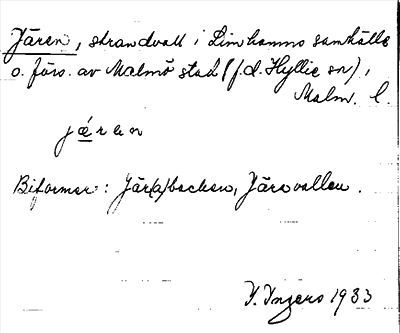 Jären, strandvall i Limhamns samhälle
o. förs. av Malmö stad (f.d. Hyllie sn),
Malm. l.
jæ̱ren
Biformer: Jär(a)backen, Järavallen.
I. Ingers 1933